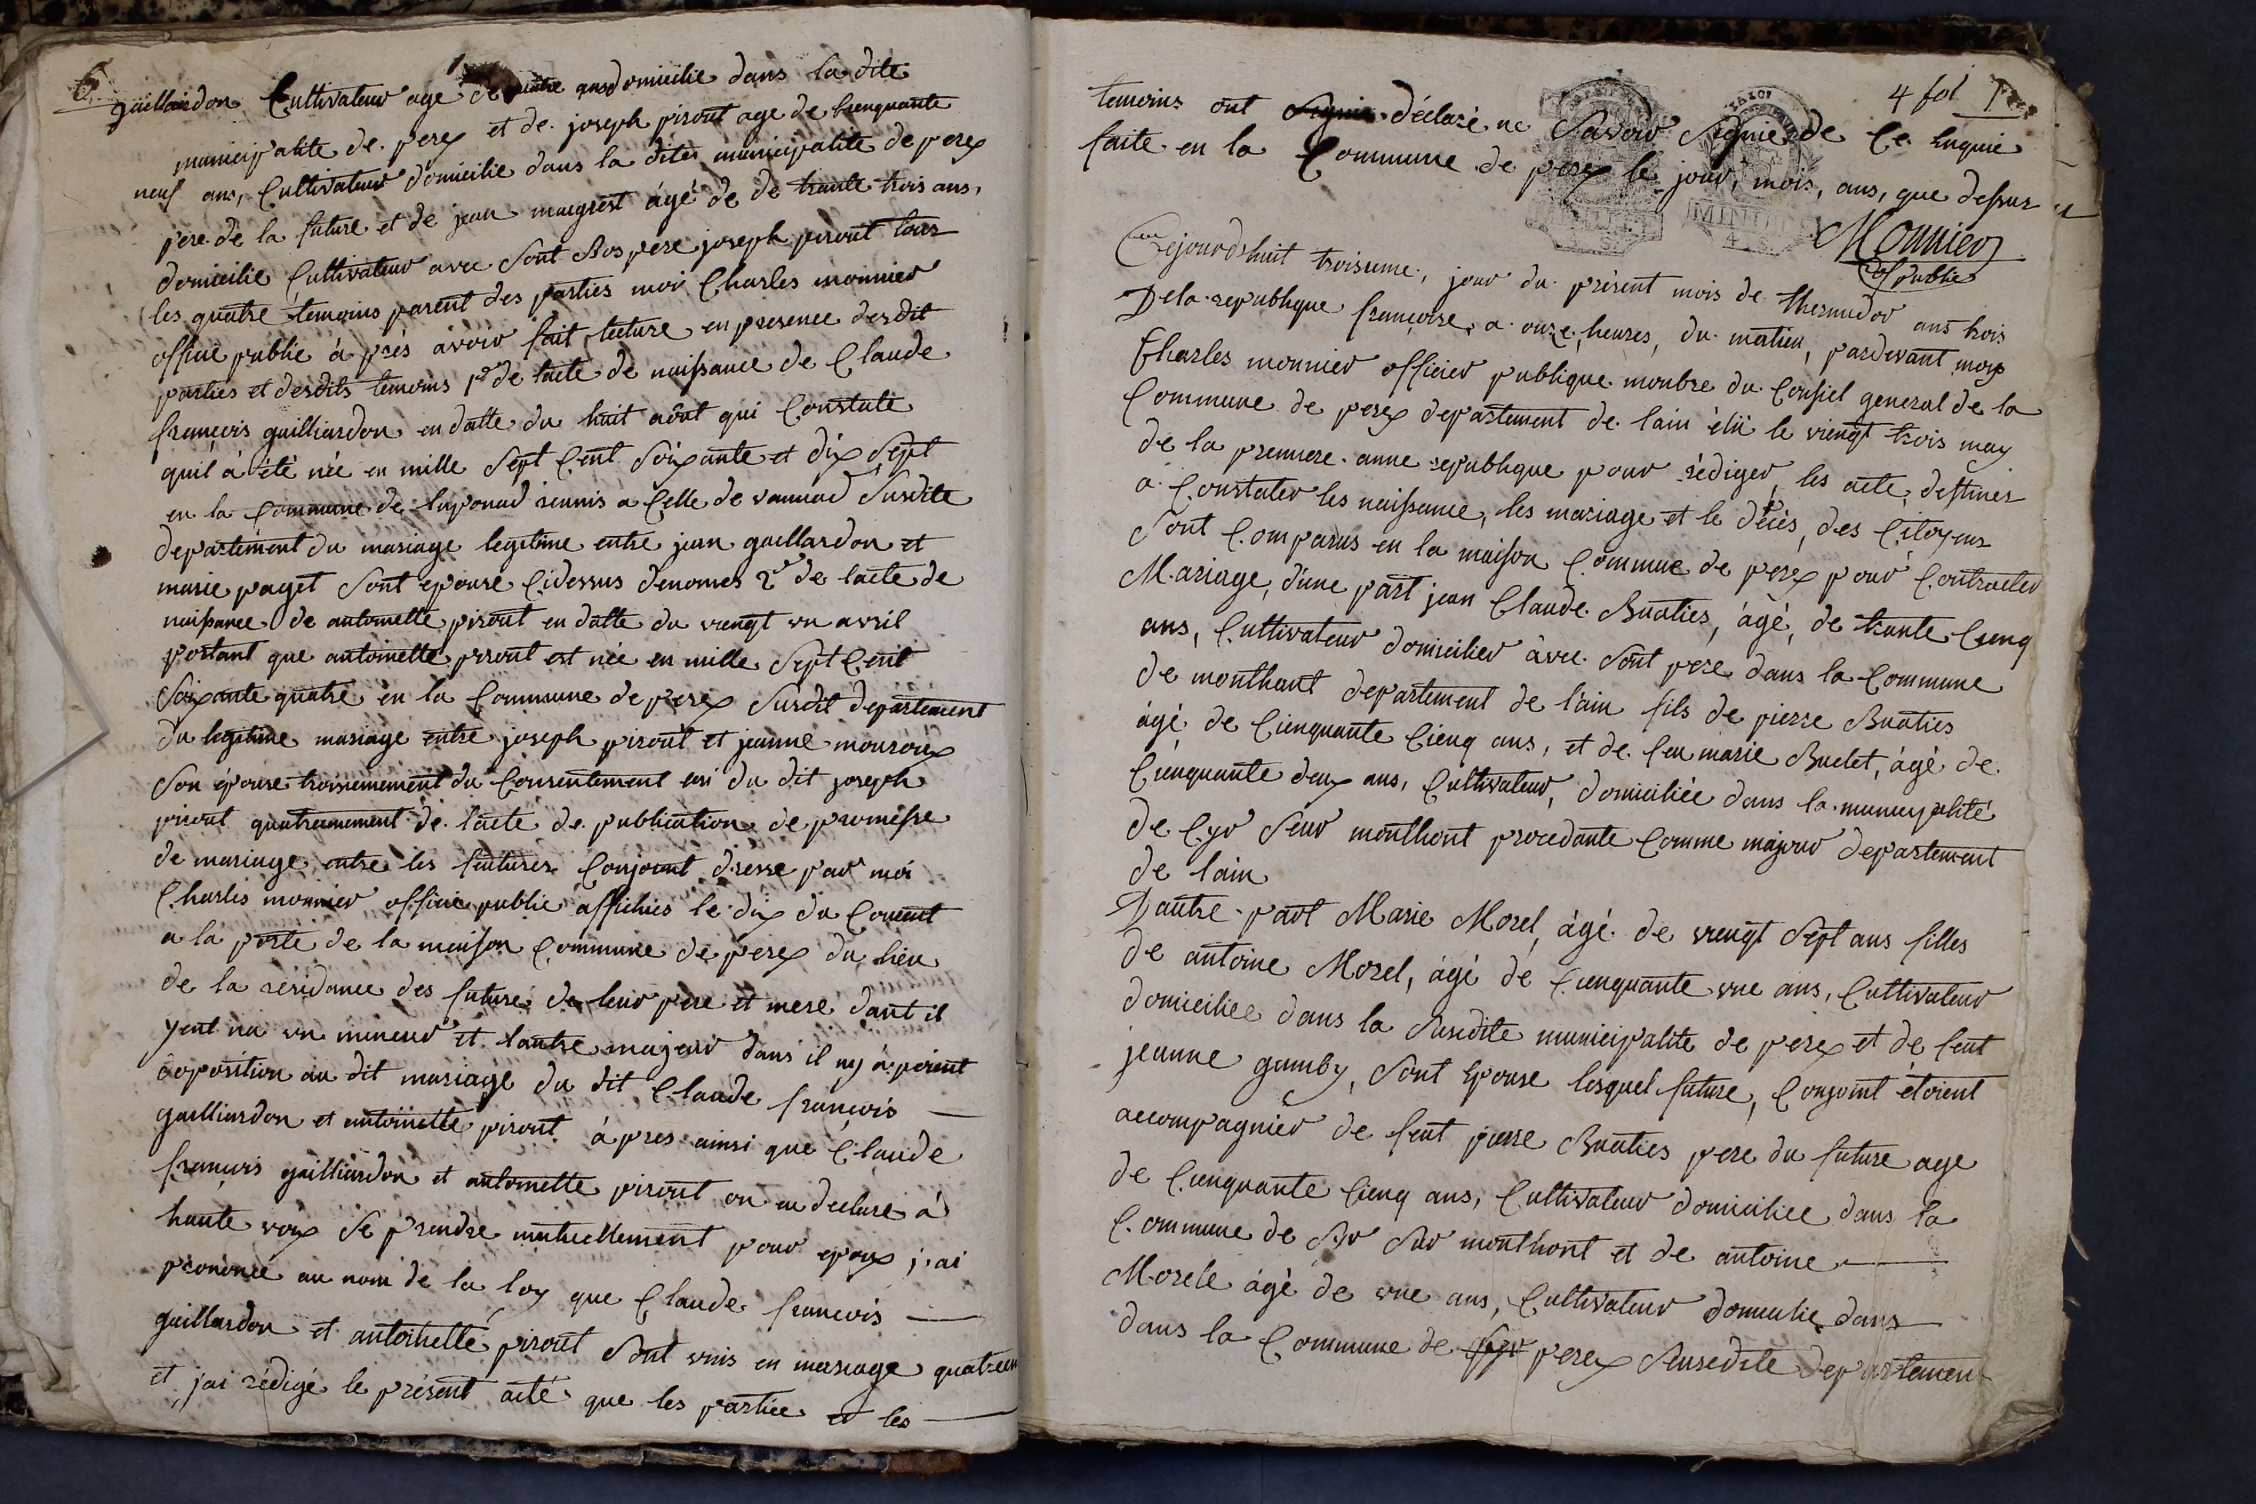 6
guillardon Cultivateur agé de ans domicilié dans la dite
municipalite de perex et de joseph pirout age de Cenquante
neuf ans, Cultivateur domicilie dans la dite municipalite de perex
pere de la future et de jean maigrest âgé de de trante trois ans,
domicilie Cultivateur avec sont Bos pere joseph pirout tous
les quatre temoins parent des parties moi Charles monnier
officie public à près avoir fait lecture en presence desdit
parties et desdits temoins 1º de lacte de naissance de Claude
françois guilliardon en datte du huit aôut qui Constate
quil à été née en mille Sept Cent Soixante et dix Sept
en la Commune de luponad reunis a Celle de vannad Susdite
departement du mariage legitime entre jean guillardon et
marie paget Sont epouse Cidessus denomes 2º de lacte de
naissance de antoinette pirout en datte du viengt un avril
portant que antoinette pirout est née en mille Sept Cent
Soixante quatre en la Commune de perex Susdit departement
du legitime mariage entre joseph pirout et jeanne mouroux
Son épouse troisiemement du Consentement du dit joseph
pirout quatriemement de lacte de publication de promesse
de mariage entre les futures Conjoint dresse par moi
Charles monnier officie public affichies le dix du Courent
a la porte de la maison Commune de perex du lieu
de la residance des future de leur pere et mere dant il
yent na un mineur et lautre majeur dans il ny a point
ooposition au dit mariage du dit Claude françois
guilliardon et antoinette pirout à pres ainsi que Claude
françois guilliardon et antoinette pirout on eu declare à
haute voix Se prendre mutuellement pour epoux j'ai
prononcé au nom de la loy que Claude francois
guillardon et antoinette pirout Sont unis en mariage
et jai rédigé le présent acté que les partiee et les
4 fol
temoins ont signie déclaré ne Savoir Signie de Ce Enquie
faite en la Commune de perex le jour, mois, ans, que dessus
Monnier
of public
Cejourdshuit troisieme, jour du present mois de thermidor ans trois
De la republique françoise, a onze, heures, du matien, pardevant moy
Charles monnier officier publique monbre du Consiel general de la
Commune de perex departement de lain élü le viengt trois may
de la premiere anne republique pour rédiger, les acte, destines
a Constater les naissance, les mariage et le décés, des Citoyens
Sont Comparus en la maison Commue de perex pour Contracter
Mariage, d'une part jean Claude Buaties, âgé, de trante Cienq
ans, Cultivateur domicilier àvec Sont pere dans la Commune
de monthant departement de l'ain fils de pierre Buaties
âgé de Cienquante Cienq ans, et de feu marie Buclet, âgé de
Cienquante deux ans, Cultivateur, domiciliée dans la municipalité
de Cyr Seur monthont procedante Comme majour departement
de lain
Dautre part Marie Morel, âgé de viengt Sept ans filles
de antoine Morel, âgé de Cienquante une ans, Cultivateur
domiciliee dans la Susdite municipalite de perex et de feut
jeanne gumby, Sont Epouse lesquel future, Conjoint étoient
accompagnier de feut pierre Buaties pere du future age
de Cenquante Cienq ans, Cultivateur domiciliee dans la
Commune de Syr Sur monthont et de antoine
Morele âgé de une ans, Cultivateur domicilie dans
dans la Commune de perex Susedite departement